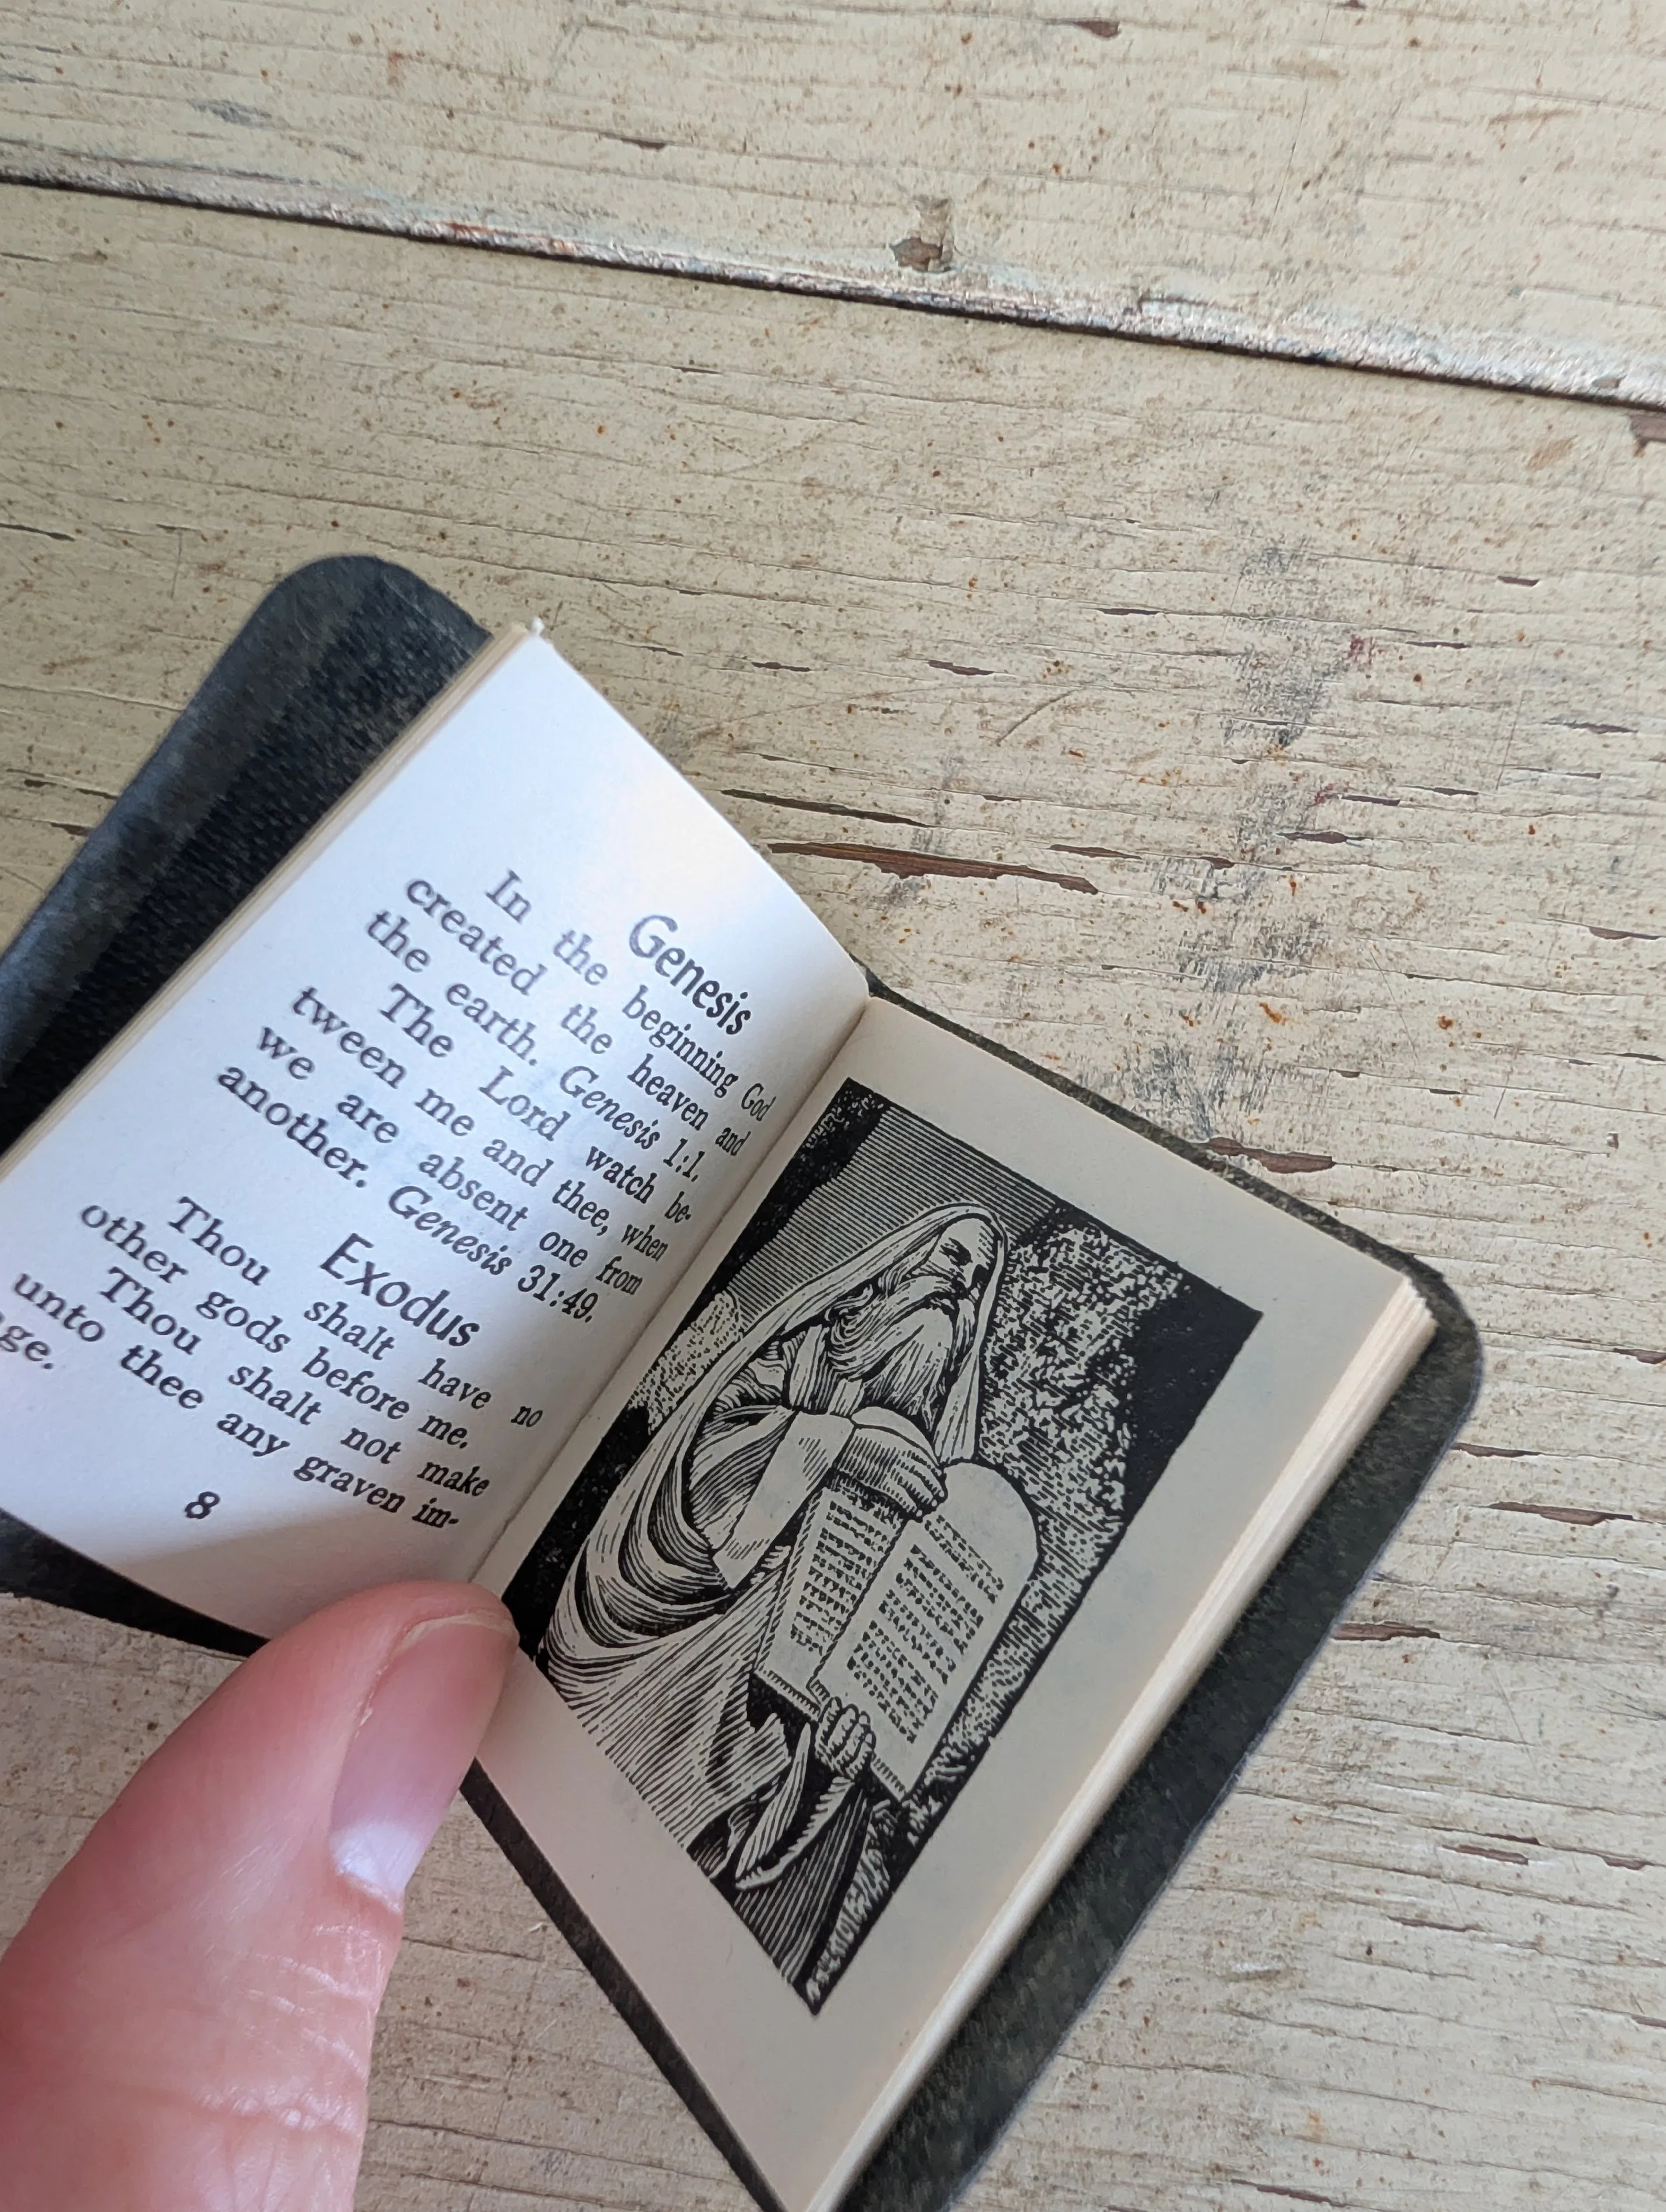 Genesis
In the beginning God
created the heaven and
the earth. Genesis 1:1.
The Lord watch be-
tween me and thee, when
we are absent one from
another. Genesis 31:49.
Exodus
Thou shalt have no
other gods before me.
Thou shalt not make
unto thee any graven im-
age.
8